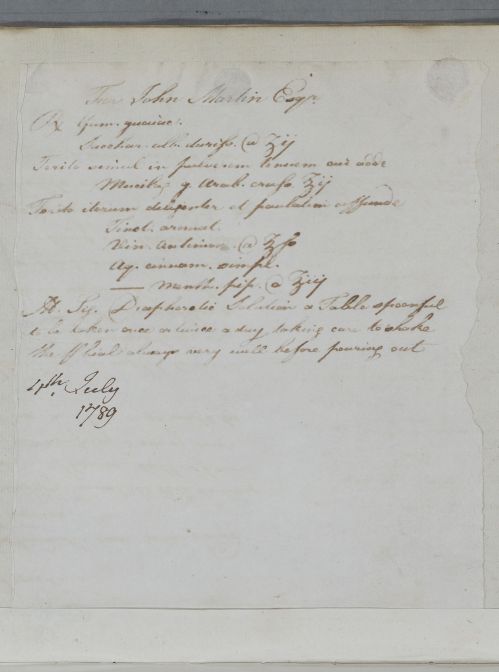 For John Martin Esqr.
Rx Gum. guaiac.
Sacchar. alb. duriss. a ʒij
Terito simul in pulverem tenuem cui adde
Mucilag g. Arab. crass. ʒij
Terito iterum diligenter et paulatim affunde
Tinct. aromat.
Vin. Antimon. a ℥ss
Aq. cinnam. simpl.
— Menth. pip. a ℥iij
M. Sig. Diaphoretic Solution a Table spoonful
to be taken once or twice a day taking care to shake
the Phial always very well before pouring out
4th. July
1789